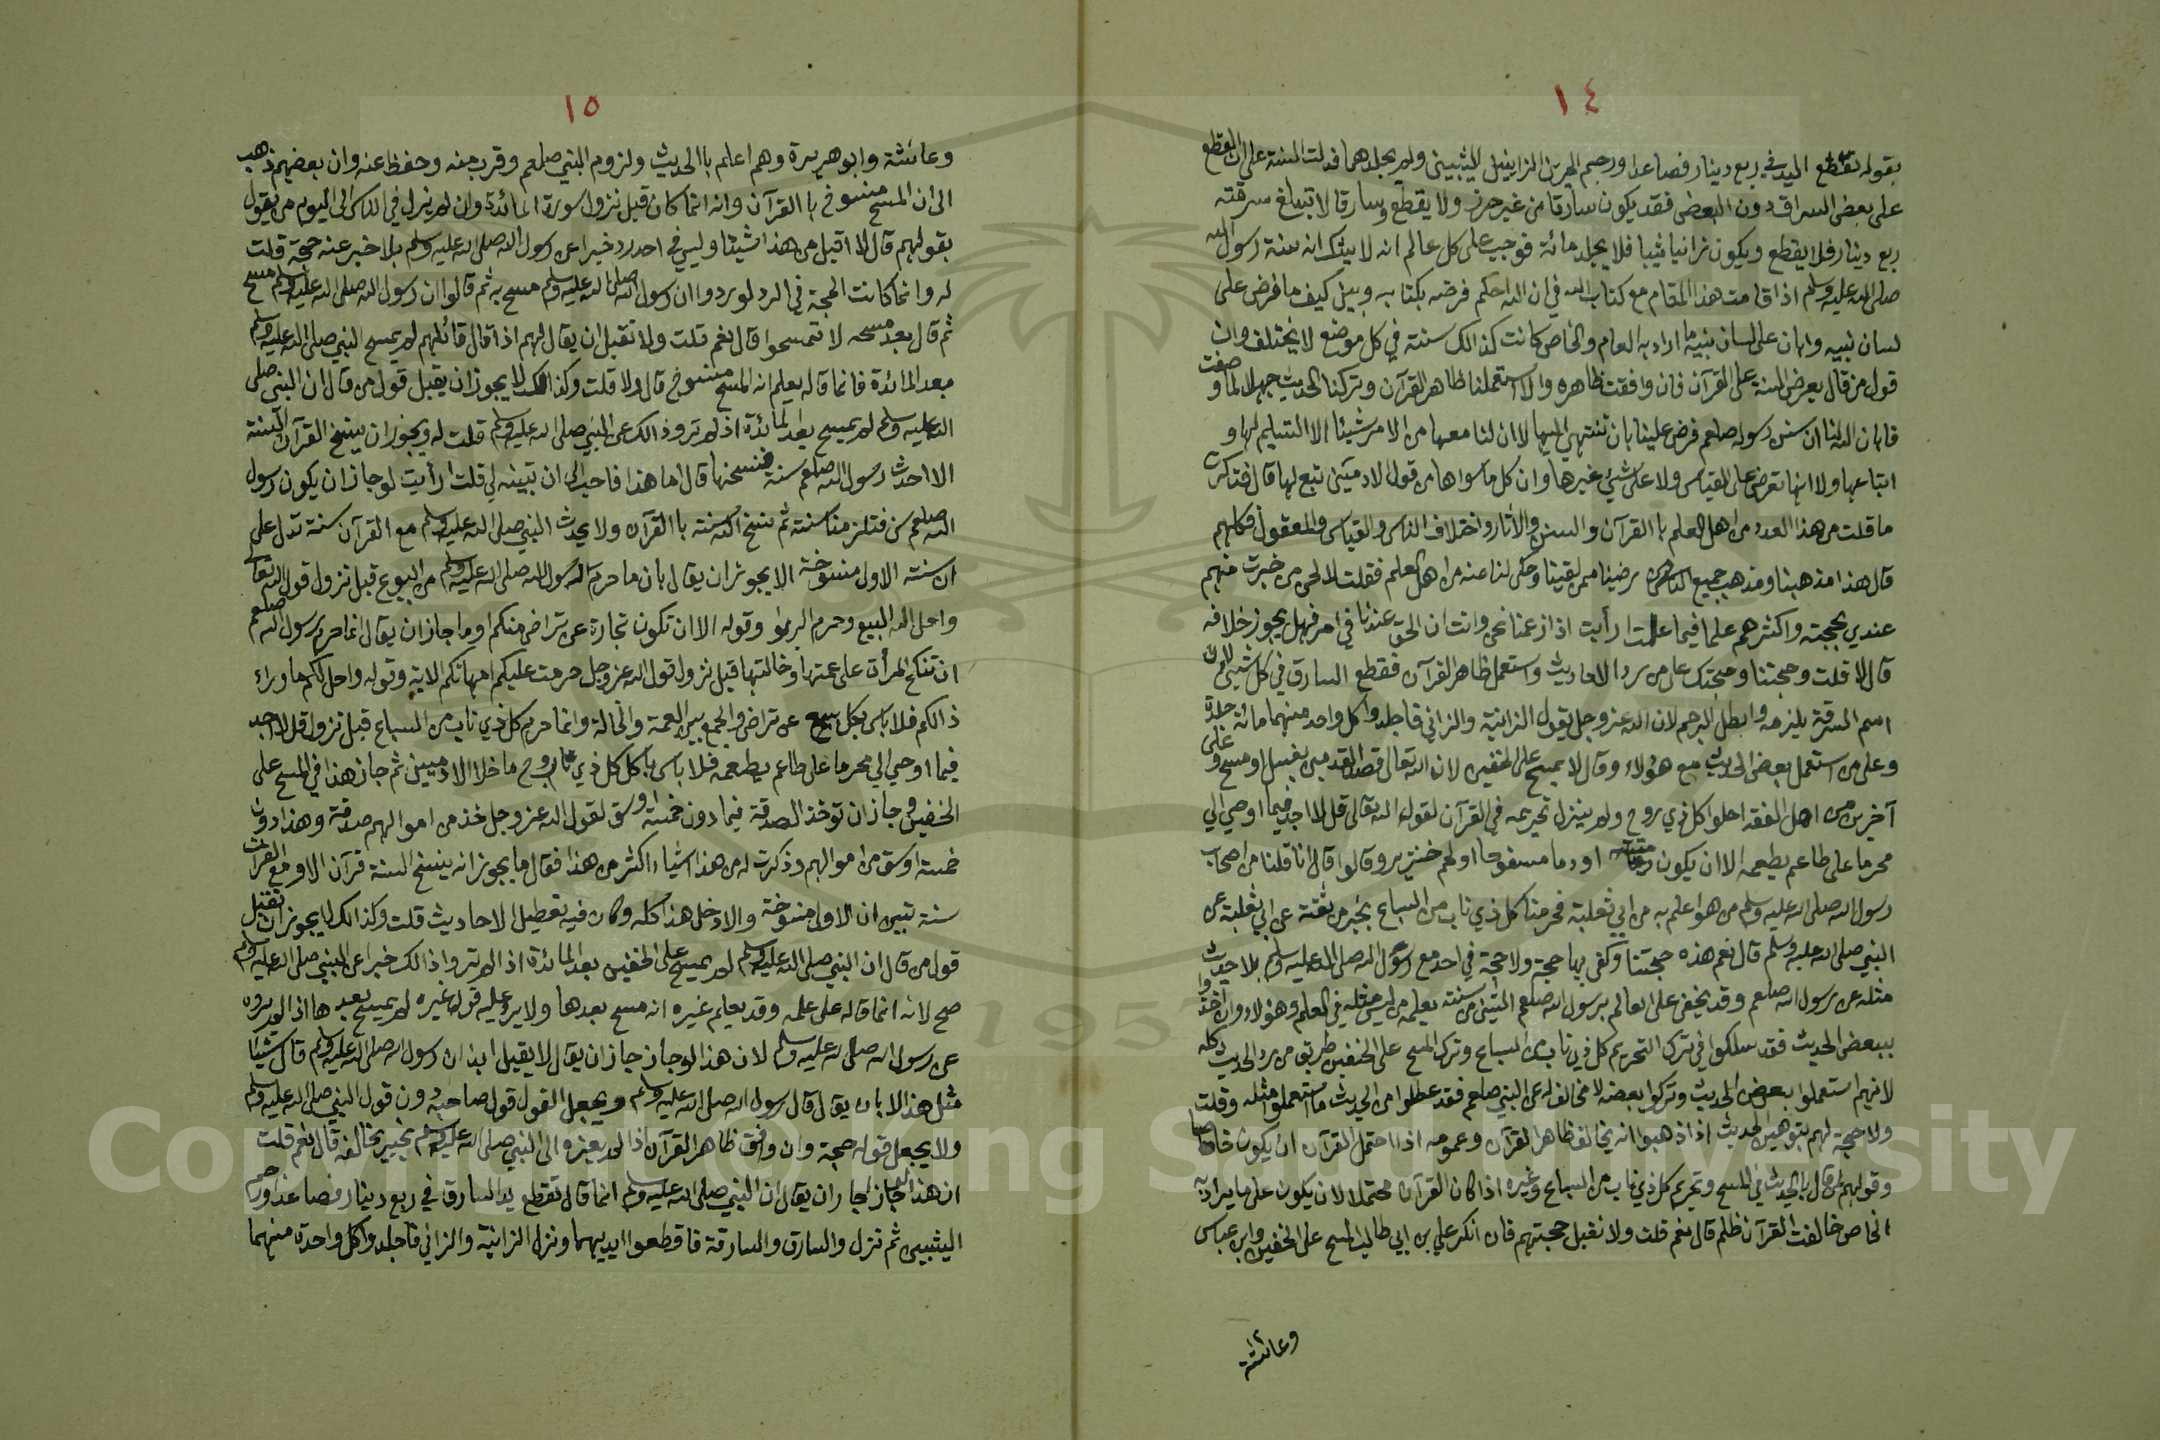 ١٤
بقوله تقطع اليد في ربع دينار فصاعدا ورجم الحرين الزانيين الثيبين ولم يجلدهما فدلت السنة على ان القطع
على بعض السراق دون البعض فقد يكون سارقا من غير حرز ولا يقطع وسارقا لا تبلغ سرقته
ربع دينار فلا يقطع ويكون زانيا ثيبا فلا يجلد مائة فوجب على كل عالم انه لا يشك انه سنة رسول الله
صلى الله عليه وسلم اذا قامت هذا المقام مع كتاب الله في ان الله احكم فرضه بكتابه وبين كيف ما فرض على
لسان نبيه وابان على لسان نبيه ما اراد به العام والخاص كانت كذالك سنته في كل موضع لا يختلف وان
قول من قال يعرض السنة على القرآن فان وافقت ظاهره والا استعملنا ظاهر القرآن وتركنا الحديث جهلا لما وصفت
فابان الله لنا ان سنن رسوله صلعم فرض علينا بان ننتهي اليها لا ان لنا معها من الامر شيئا الا التسليم لها و
اتباعها ولا انها تعرض على القياس ولا على شيئ غيرها وان كل ما سواها من قول الادميين تبع لها قال فذكرت
ما قلت من هذا العدد من اهل العلم با القرآن والسنن والأثار واختلاف الناس والقياس والمعقول فكلهم
قال هذا مذهبنا ومذهب جميع الناس رضينا ممن لقينا وحكى لنا عنه من اهل العلم فقلت لالحى من خبرت منهم
عندي بحجته واكثرهم علما فيما علمت ارأيت اذا زعمنا نحن وانت ان الحق عندنا في امر فهل يجوز خلافه
قال لا قلت وحجتنا وحجتك على من رد الاحاديث واستعمل ظاهر القرآن فقطع السارق في كل شيئ لان
اسم السرقة يلزمه وابطل الرجم لان الله عز وجل يقول الزانية والزاني فاجلدوا كل واحد منهما مائة جلدة
وعلى من استعمل بعض الحديث مع هؤلاء وقال لا يمسح على الخفين لان الله تعالى قصد القدمين بغسل او مسح وعلى
آخرين من اهل الفقه احلوا كل ذي روح ولم ينزل تحريمه في القرآن لقول الله تعالى قل لا اجد فيما اوحي الي
محرما على طاعم يطعمه الا ان يكون ميتة او دما مسفوحا او لحم خنزير وقالوا قال انا قلنا من اصحاب
رسول الله صلى الله عليه وسلم من هو اعلم به من ابي ثعلبة فحرمنا كل ذي ناب من السباع بخبر من ثقة عن ابي ثعلبة عن
النبي صلى الله عليه وسلم قال نعم هذه حجتنا وكفى بها حجة ولا حجة في احد مع رسول الله صلى الله عليه وسلم بلا حديث
مثله عن رسول الله صلعم وقد يخفى على العالم برسول الله صلعم الشيئ من سنته يعلمه من ليس مثله في العلم وهؤلاء وان اخذوا
ببعض الحديث فقد سلكوا في ترك التحريم كل ذي ناب من السباع وترك المسح على الخفين طريق من رد الحديث كله
لانهم استعملوا بعض الحديث وتركوا بعضه لا مخالف له عن النبي صلعم فقد عطلوا من الحديث ما استعملوا مثله وقلت
ولا حجة لهم بتوهين الحديث اذا ذهبوا انه يخالف ظاهر القرآن وعمومه اذا احتمل القرآن ان يكون خاصا
وقولهم لمن قال با الحديث في المسح وتحريم كل ذي ناب من السباع وغيره اذا كان القرآن محتملا لان يكون على ما يراد به
الخاص خالفت القرآن ظلم قال نعم قلت ولا نقبل حجتهم فان انكر علي بن ابي طالب المسح على الخفين وابن عباس
وعائشة
١٥
وعائشة وابو هريرة وهم اعلم با الحديث ولزوم النبي صلعم وقرب منه وحفظ عنه وان بعضهم ذهب
الى ان المسح منسوخ با القرآن وانه انما كان قبل نزول سورة المائدة وان لم نزل في الناس الى اليوم من يقول
بقولهم قال لا اقبل من هذا شيئا وليس في احد رد خبرا عن رسول الله صلى الله عليه وسلم بلا خبر عنه حجة قلت
له وانما كانت الحجة في الرد لو ردوا ان رسول الله صلى الله عليه وسلم مسح به ثم قالوا ان رسول الله صلى الله عليه وسلم مسح
ثم قال بعد مسحه لا تمسحوا قال نعم قلت ولا تقبل ان يقال لهم اذا قال قائلهم لم يمسح النبي صلى الله عليه وسلم
بعد المائدة فانما قاله يعلم انه المسح منسوخ قال لا قلت وكذالك لا يجوز ان يقبل قول من قال ان النبي صلى
الله عليه وسلم لم يمسح بعد المائدة اذ لم ترو ذالك عن النبي صلى الله عليه وسلم قلت له ويجوز ان ينسخ القرآن السنة
الا احدث رسول الله صلعم سنة فنسخها قال اما هذا فاحب الى ان تبينه لي قلت ارأيت لو جاز ان يكون رسول
الله صلعم سن فتلزمنا سنته ثم نسخ الله سنته با القرآن ولا يحدث النبي صلى الله عليه وسلم مع القرآن سنة تدل على
ان سنته الاولى منسوخة الا يجوز ان يقال بان ما حرم رسول الله صلى الله عليه وسلم من البيوع قبل نزول قول الله تعالى
واحل الله البيع وحرم الربوا وقوله الا ان تكون تجارة عن تراض منكم او ما جاز ان يقال انما حرم رسول الله صلعم
ان تنكح المرأة على عمتها وخالتها قبل نزول قول الله عز وجل حرمت عليكم امهاتكم الاية وقوله واحل لكم ما وراء
ذالكم فلا باس بكل بيع عن تراض والجمع بين العمة والخالة وانما حرم كل ذي ناب من السباع قبل نزول قل لا اجد
فيما اوحي الي محرما على طاعم يطعمه فلا باس باكل كل ذي روح ما خلا الادميين ثم جاز هذا في المسح على
الخفين وجاز ان توخذ الصدقة فيما دون خمسة اوسق لقول الله عز وجل خذ من اموالهم صدقة وهذا دون
خمسة اوسق من اموالهم وذكرت له من هذا اشياء اكثر من هذا فقال ما يجوز انه ينسخ السنة قرآن الا ومع القرآن
سنة تبين ان الاولى منسوخة والا دخل هذا كله وكان فيه تعطيل الاحاديث قلت وكذالك لا يجوز ان تقبل
قول من قال ان النبي صلى الله عليه وسلم لم يمسح على الخفين بعد المائدة اذا لم ترو اذالك خبرا عن النبي صلى الله عليه وسلم
صح لانه انما قاله على علمه وقد يعلم غيره انه مسح بعدها ولا يرد عليه قول غيره لم يمسح بعدها اذا لم يروه
عن رسول الله صلى الله عليه وسلم لان هذا لو جاز جاز ان يقال لا يقبل ابدا ان رسول الله صلى الله عليه وسلم قال شيئا
مثل هذا الا بان يقال قال رسول الله صلى الله عليه وسلم ويجعل القول قول صاحبه دون قول النبي صلى الله عليه وسلم
ولا يجعل قوله حجة وان وافق ظاهر القرآن اذا لم يعزه الى النبي صلى الله عليه وسلم بخبر يخالفه قال نعم قلت
ان هذا لو جاز جاز ان يقال ان النبي صلى الله عليه وسلم انما قال تقطع يد السارق في ربع دينار فصاعدا ورجم
الثيبين ثم نزل والسارق والسارقة فاقطعوا ايديهما ونزل الزانية والزاني فاجلدوا كل واحدة منهما
Copyright © King Saud University
1957